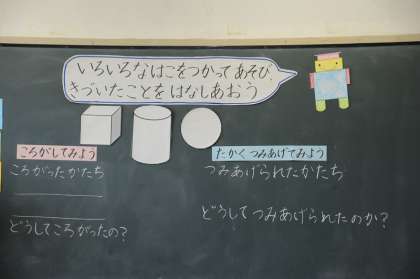 いろいろなはこをつかってあそび、
きづいたことを はなしあおう
ころがしてみよう
ころがったかたち
どうしてころがったの?
たかくつみあげてみよう
つみあげられたかたち
どうしてつみあげられたのか?